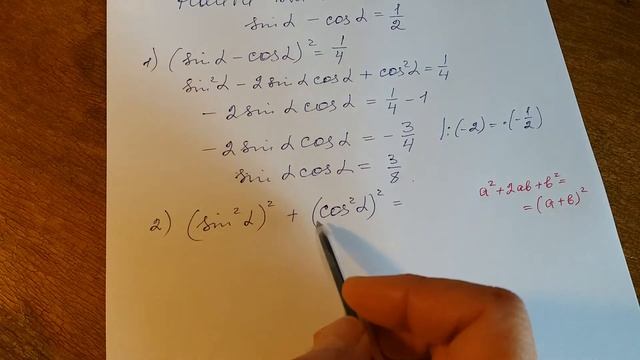 sin α - cos α = 1/2
1) (sin α - cos α)² = 1/4
sin² α - 2 sin α cos α + cos² α = 1/4
- 2 sin α cos α = 1/4 - 1
- 2 sin α cos α = - 3/4 |: (-2) = · (- 1/2)
sin α cos α = 3/8
2) (sin² α)² + (cos² α)² =
a² + 2ab + b² =
= (a + b)²